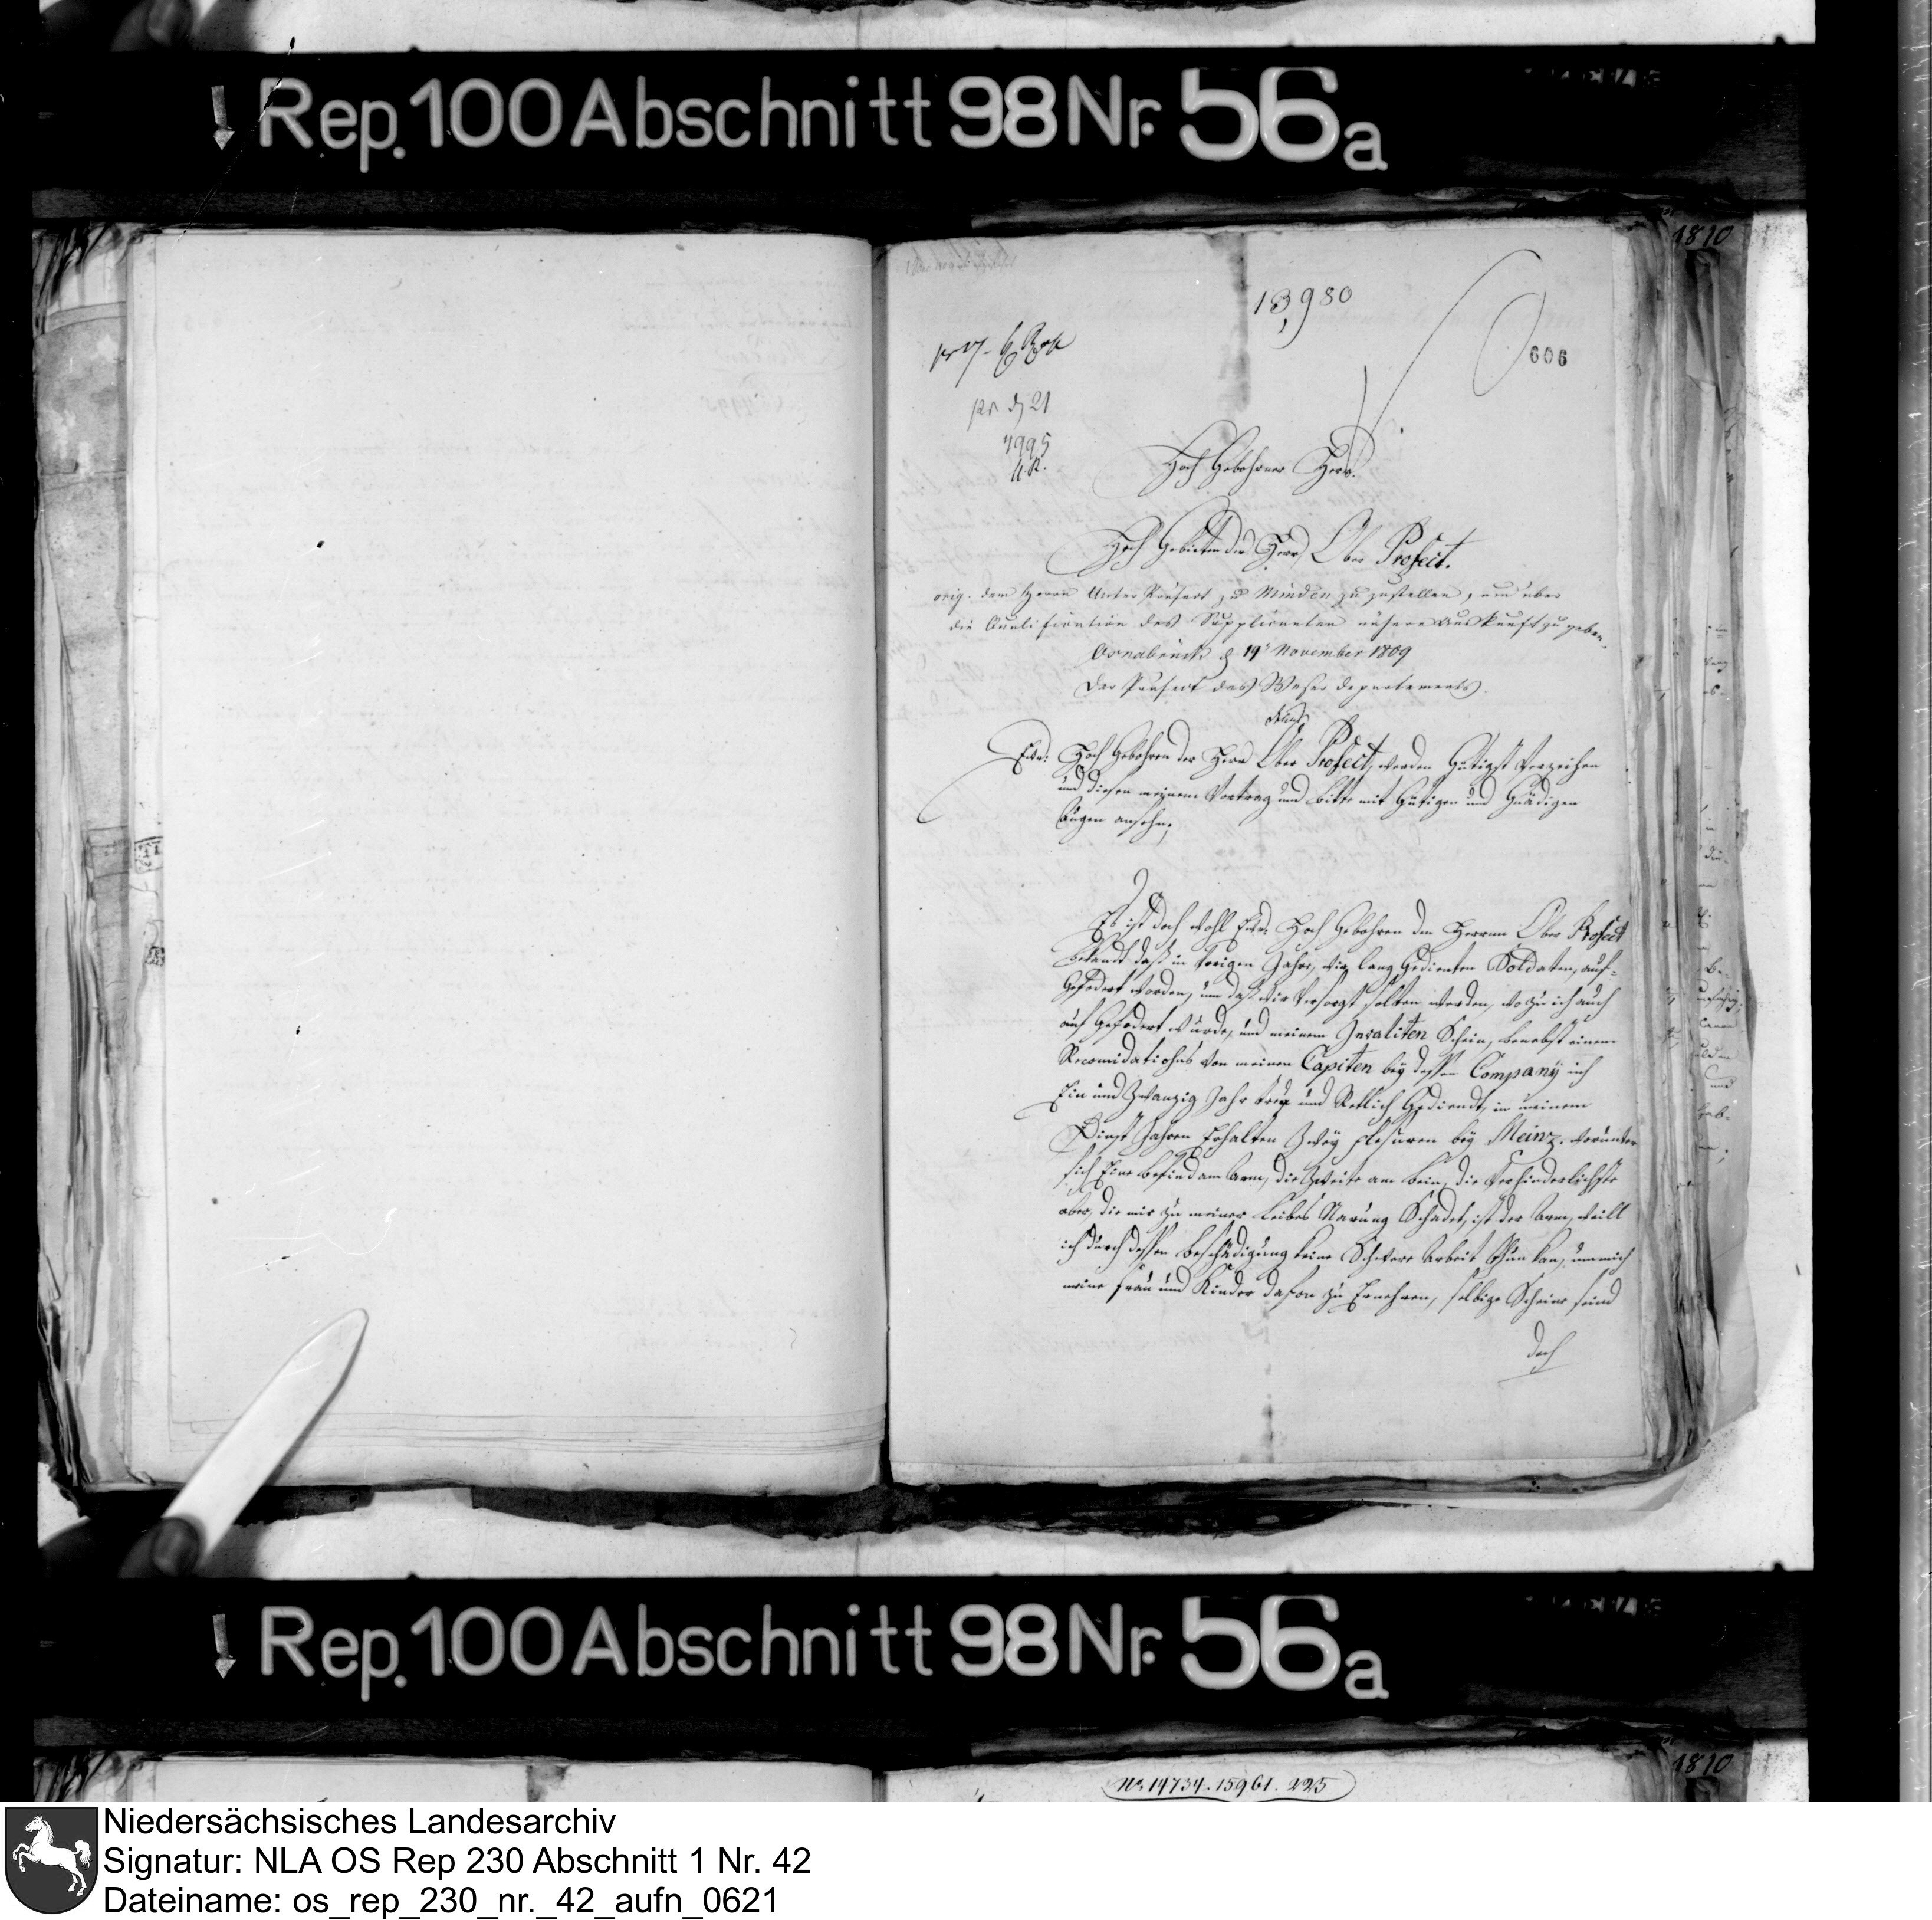 Rep. 100 Abschnitt 98 Nr. 56a
1810
13,980
606
pr d 21
4995
U. R.
Hoch Gebohrner Herr.
Hoch Gebietender Herr, Ober Profect.
orig. dem Herrn Unter Präfect zu Minden zuzustellen, um über
die Qualification des Supplicanten nähere Auskunft zu geben.
Osnabrück d. 19t November 1809
Der Präfect des Weser departements.
Ew: Hoch Gebohren der Herr Ober Profect, werden Gütigst Verzeihen
und diesen meinem Vortrag und bitte mit Gütigen und Gnädigen
Augen ansehn,
Es ist doch wohl Ew: Hoch Gebohren dem Herren Ober Profect
bekandt daß in Vorigen Jahre, die lang Gedienten Soldaten, auf-
Gefodert worden, um daß wir Versorgt solten werden, wozu ich auch
auf Gefodert wurde, und meinem Invaliten Schein, benebst einem
Recomidations von meinen Capiten bey dessen Company ich
Ein und Zwanzig Jahr treu und Retlich Gediendt, in meinem
Dienst Jahren Erhalten Zwey plesuren bey Meinz. worunter
sich Eine befind am Arm, die Zweite am bein, die Verhinderlichste
aber, die mir zu meiner Leibes Narung Schadet, ist der Arm, weill
ich durch dessen beschädigung keine Schwere Arbeit thun kan, um mich
meine Frau und Kinder dafon zu Ernehren, selbige Scheine seind
doch
Rep. 100 Abschnitt 98 Nr. 56a
1810
No 14734. 15961. 225
Niedersächsisches Landesarchiv
Signatur: NLA OS Rep 230 Abschnitt 1 Nr. 42
Dateiname: os_rep_230_nr._42_aufn_0621